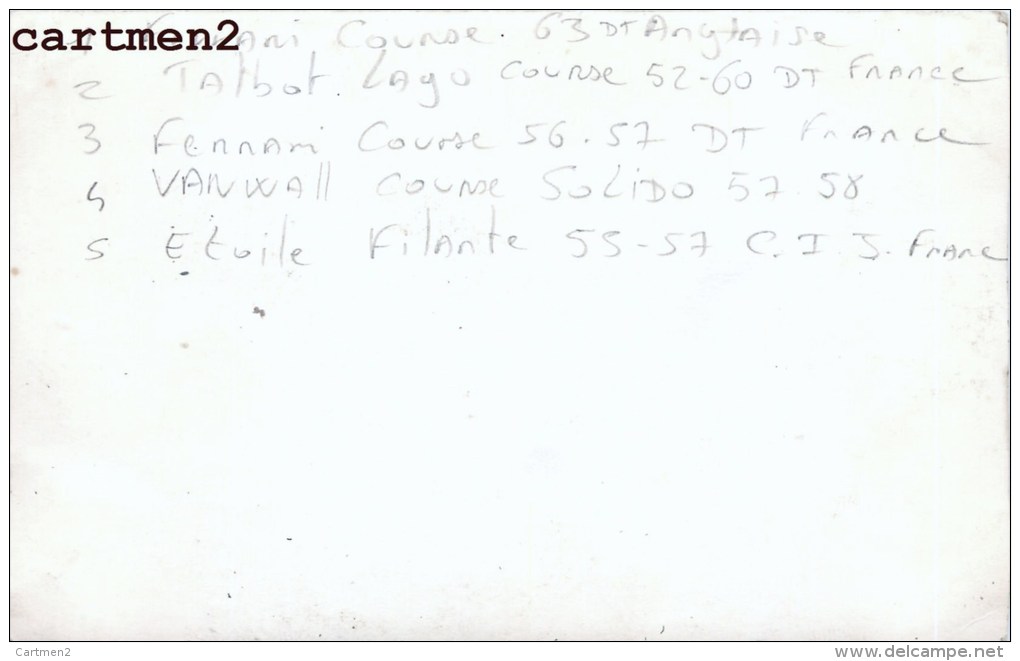 cartmen2
Course. 63 DT Anglaise
2 Talbot. Lago course 52-60 DT France
3 Ferrari Course 56.57 DT France
4 VANWAll course SOLIDO 57.58
5 Etoile Filante 55-57 C.I.J. Franc
Cartmen2
www.delcampe.net